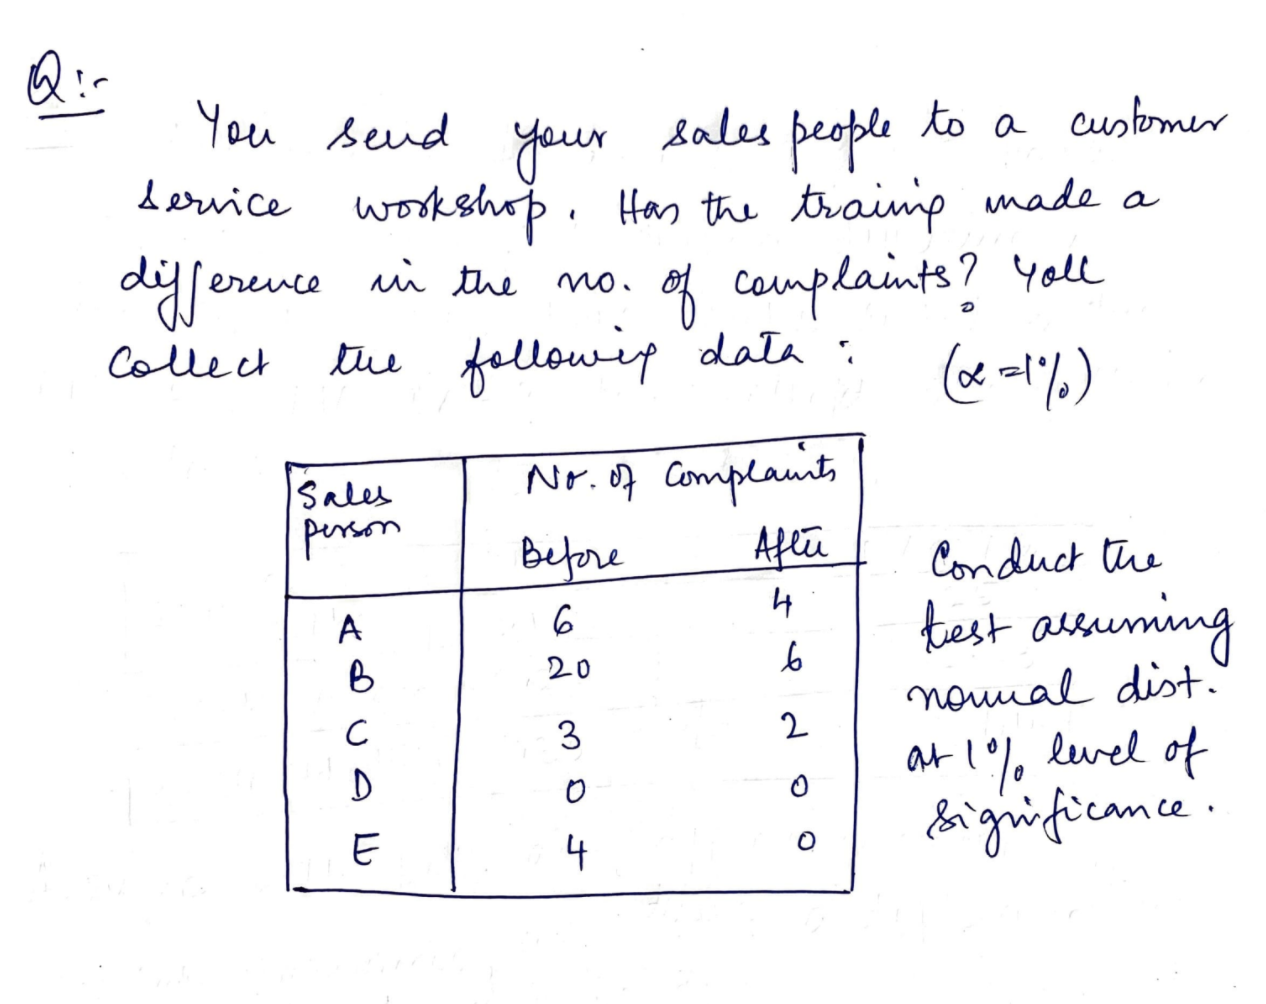 Q:-
You send your sales people to a customer
service workshop. Has the training made a
difference in the no. of complaints? You
Collect the following data : (α=1%)
Sales person
No. of Complaints
Before After
A 6 4
B 20 6
C 3 2
D 0 0
E 4 0
Conduct the
test assuming
normal dist.
at 1% level of
significance.